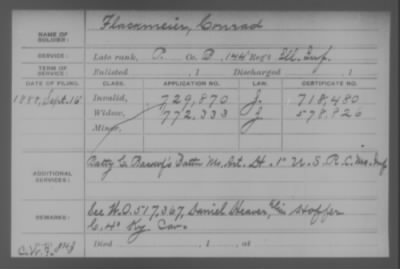 NAME OF SOLDIER: Flackmeier, Conrad
SERVICE: Late rank, P. Co. D, 144 Reg't Ill. Inf.
TERM OF SERVICE: Enlisted , 1 Discharged , 1
DATE OF FILING. CLASS. APPLICATION NO. LAW. CERTIFICATE NO.
1889, Sept. 16 Invalid, 729,870 J. 718,480
Widow, 772,333 J 578,826
Minor,
ADDITIONAL SERVICES: Batty C Batt'n Mo. Art. & 1" U.S. R.C. Mo. Inf
REMARKS: See W.O. 517,367, Daniel Stoffer
C, 4" Ky. Cav.
Died , 1 , at